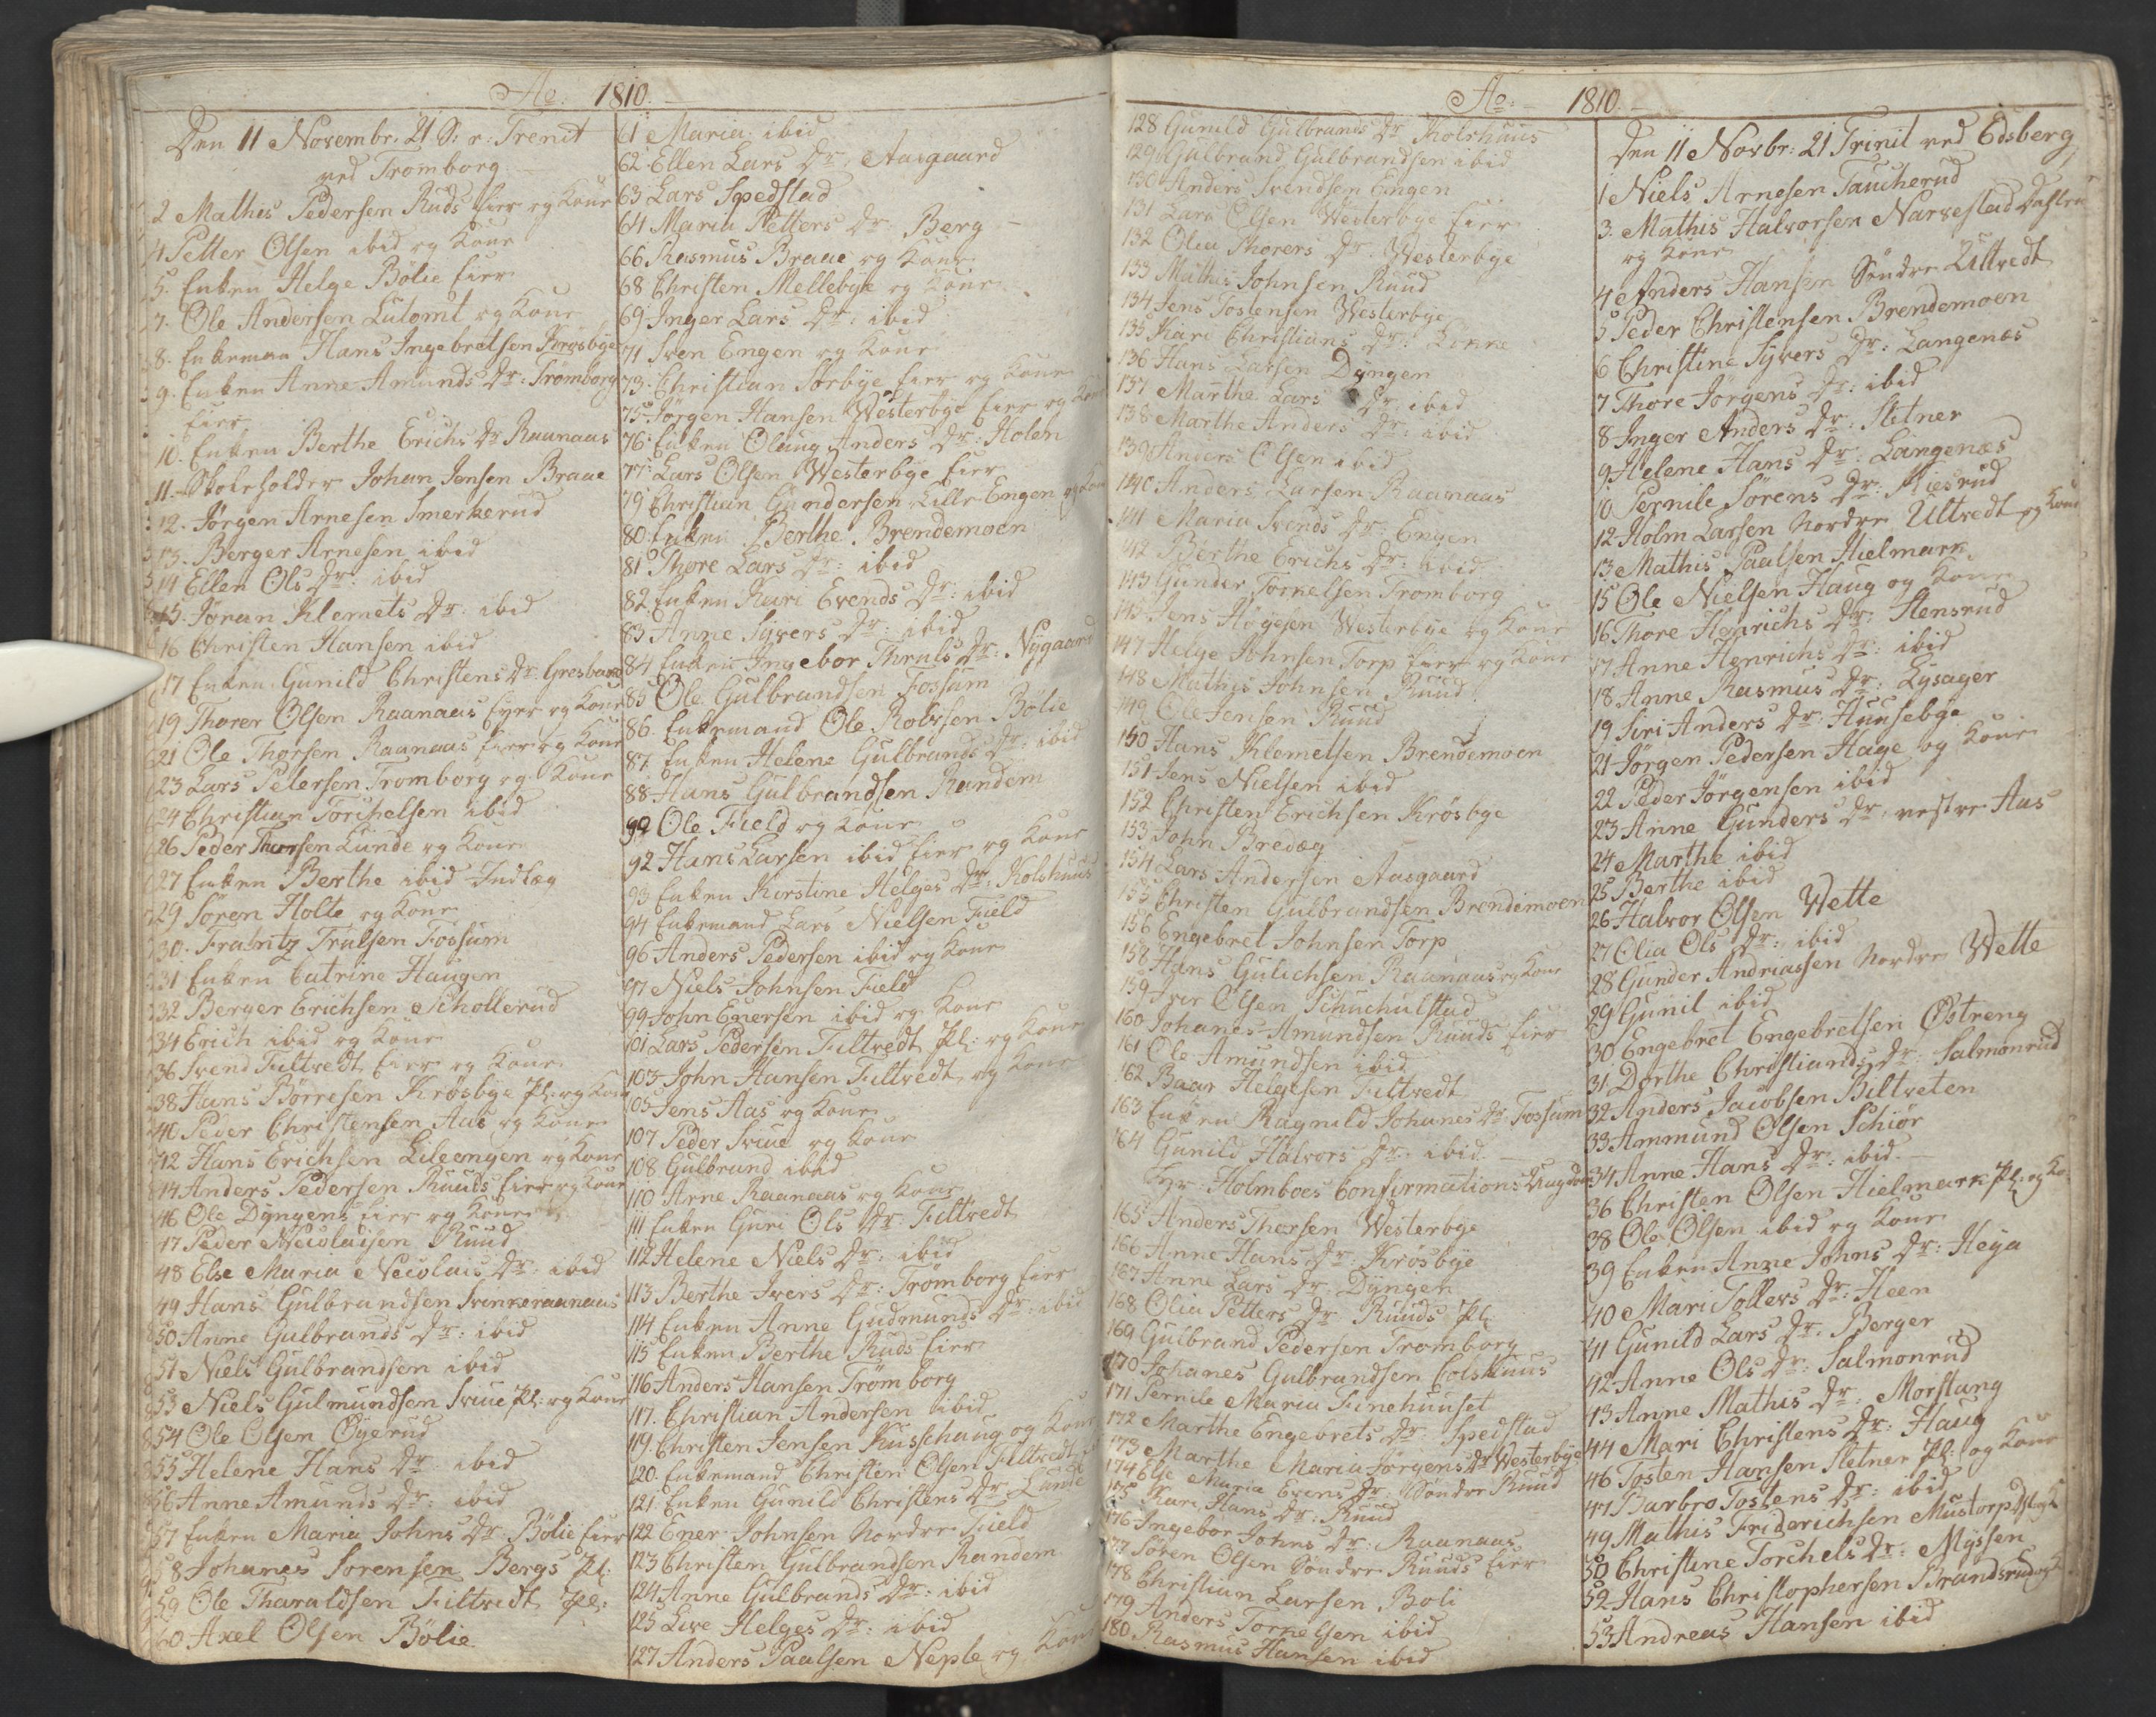 Ao: 1810.
Den 11 Novembr: 21 S: r: Trenit
ved Tromborg
2 Mathis Pedersen Ruds Eier og Kone
4 Petter Olsen ibid og Kone
5. Enken Helge Bölie Eier
7. Ole Andersen Lutomt og Kone
8. Enkeman Hans Ingebretsen Krösbye
9. Enken Anne Amunds Dr: Tromborg
Eier
10. Enken Berthe Erichs Dr Raanaas
11. Skoleholder Johan Jensen Braae
12. Jörgen Arnesen Smerkerud
13. Berger Arnesen ibid
14 Ellen Ols Dr: ibid
15. Joran Klemets Dr: ibid
16 Christen Hansen ibid
17 Enken Gunild Christens Dr
19 Thorer Olsen Raanaas Eyer og Kone
21 Ole Thorsen Raanaas Eier og Kone
23 Lars Petersen Tromborg og Kone
24 Christian Torchelsen ibid
26 Peder Thorsen Lunde og Kone
27 Enken Berthe ibid Indlæg
29 Sören Holte og Kone
30. Frantz Trulsen Fossum
31 Enken Catrine Haugen
32 Berger Erichsen Schollerud
34 Erich ibid og Kone
36 Svend Filtvedt Eier og Kone
38 Hans Börresen Krösbye Pl: og Kone
40 Peder Christensen Aas og Kone
42 Hans Erichsen Lileengen og Kone
44 Anders Pedersen Ruuds Eier og Kone
46 Ole Dyngens Eier og Kone
47 Peder Nicolaisen Ruud
48 Else Maria Nicolais Dr: ibid
49 Hans Gulbrandsen
50 Anne Gulbrands Dr: ibid
51 Niels Gulbrandsen ibid
53 Niels Gulmundsen Pl: og Kone
54 Ole Olsen Öyerud
55 Helene Hans Dr ibid
56 Anne Amunds Dr: ibid
57 Enken Maria Johns Dr Bölie Eier
58 Johanes Sorensen Bergs Pl:
59 Ole Tharaldsen Filtvedt Pl:
60 Axel Olsen Bölie
61 Maria ibid
62 Ellen Lars Dr: Aasgaard
63 Lars Spedstad
64 Maria Petters Dr: Berg
66 Rasmus Braae og Kone
68 Christen Mellebye og Kone
69 Inger Lars Dr: ibid
71 Sven Engen og Kone
73. Christian Sorbye Eier og Kone
75 Jörgen Hansen Westerbye Eier og Kone
76 Enken Olaug Anders Dr: Holen
77 Lars Olsen Westerbye Eier
79 Christian Gundersen Lille Engen og Kone
80. Enken Berthe Brendemoen
81 Thore Lars Dr: ibid
82 Enken Kari Evends Dr: ibid
83 Anne Syvers Dr: ibid
84 Enken Ingebor Thruls Dr: Nygaard
85 Ole Gulbrandsen Fossum
86. Enkemand Ole Bölie
87 Enken Helene Gulbrands Dr: ibid
88 Hans Gulbrandsen Randem
90 Ole Field og Kone
92 Hans Larsen ibid Eier og Kone
93 Enken Kirstine Helges Dr: Kolshuus
94 Enkemand Lars Nielsen Field
96 Anders Pedersen ibid og Kone
97 Niels Johnsen Field
99 John Enersen ibid og Kone
101 Lars Pedersen Filtvedt Pl: og Kone
103 John Hansen Filtvedt og Kone
105 Jens Aas og Kone
107 Peder og Kone
108 Gulbrand ibid
110 Arne Raanaas og Kone
111 Enken Guri Ols Dr: Filtvedt
112 Helene Niels Dr: ibid
113 Berthe Ivers Dr: Trömborg Eier
114 Enken Anne Gudmunds Dr: ibid
115 Enken Berthe Ruds Eier
116 Anders Hansen Trömborg
117. Christian Andersen ibid
119. Christen Jensen Kusschaug og Kone
120. Enkemand Christen Olsen Filtvedt
121. Enken Gunild Christens Dr Lunde
122 Ener Johnsen Nordre Field
123 Christen Gulbrandsen Randem
124 Anne Gulbrands Dr: ibid
125 Live Helges Dr: ibid
127 Anders Paalsen Neple og Kone
Ao: 1810.
128 Gunild Gulbrands Dr Kolshuus
129 Gulbrand Gulbrandsen ibid
130 Anders Svendsen Engen
131 Lars Olsen Westerbye Eier
132 Olea Thorers Dr: Westerbye
133 Mathis Johnsen Ruud
134 Jens Tostensen Westerbye
135 Kari Christians Dr:
136 Hans Larsen Dyngen
137 Marthe Lars Dr: ibid
138 Marthe Anders Dr: ibid
139 Anders Olsen ibid
140 Anders Larsen Raanaas
141 Maria Svends Dr: Engen
142 Berthe Erichs Dr: ibid
143 Gunder Tornelsen Tromborg
145 Jens Höyesen Westerbye og Kone
147 Helge Johnsen Torp Eier og Kone
148 Mathis Johnsen Ruud
149 Ole Jensen Ruud
150 Hans Klemetsen Brendemoen
151 Jens Nielsen ibid
152 Christen Erichsen Krösbye
153 John Bredæg
154 Lars Andersen Aasgaard
155 Christen Gulbrandsen Brendemoen
156 Engebret Johnsen Torp
158 Hans Gulichsen Raanaas og Kone
159 Iver Olsen
160 Johanes Amundsen Ruuds Eier
161 Ole Amundsen ibid
162 Baar Helgesen Filtvedt
163 Enken Ragnild Johanes Dr Fossum
164 Gunild Halvors Dr: ibid.
Hr: Holmboes Confirmations Ungdom
165 Anders Thorsen Westerbye
166 Anne Hans Dr: Krösbye
167 Anne Lars Dr: Dyngen
168 Olia Petters Dr Ruuds Pl:
169 Gulbrand Pedersen Tromborg
170 Johanes Gulbrandsen Colshuus
171 Pernile Maria Finehuuset
172 Marthe Engebrets Dr: Spedstad
173 Marthe Maria Jörgens Dr Westerbye
174 Else Maria Evens Dr: Söndre Ruud
175 Kari Hans Dr: Ruud
176 Ingebor Johns Dr: Raanaas
177 Sören Olsen Söndre Ruuds Eier
178 Christian Larsen Boli
179 Anders Tornelsen ibid
180. Rasmus Hansen ibid
Den 11 Novbr: 21 Trinit ved Edsberg
1 Niels Arnesen Taucherud
3. Mathis Halvorsen Narvestad
og Kone
4 Anders Hansen Söndre Ultvedt
5 Peder Christensen Brendemoen
6 Christine Syvers Dr: Langenæs
7 Thore Jörgens Dr: ibid
8 Inger Anders Dr: Sletner
9 Helene Hans Dr: Langenæs
10 Pernile Sörens Dr: Kiesrud
12 Holm Larsen Nordre Ultvedt og Kone
13 Mathis Paalsen Hielmark
15 Ole Nielsen Haug og Kone
16 Thore Henrichs Dr: Stensrud
17 Anne Henrichs Dr: ibid
18 Anne Rasmus Dr: Lysager
19 Siri Anders Dr: Huusebye
21 Jörgen Pedersen Hage og Kone
22 Peder Jörgensen ibid
23 Anne Gunders Dr vestre Aas
24 Marthe ibid
25 Berthe ibid
26 Halvor Olsen Wette
27 Olia Ols Dr: ibid
28 Gunder Andriassen Nordre Wette
29 Gunil ibid
30 Engebret Engebretsen Østreng
31 Dorthe Christians Dr: Salmonrud
32 Anders Jacobsen Biltveten
33 Ammund Olsen Schiör
34 Anne Hans Dr: ibid
36 Christen Olsen Hielmark Pl: og Ko
38 Ole Olsen ibid og Kone
39 Enken Anne Johns Dr: Heya
40 Mari Tollevs Dr: Heen
41 Gunild Lars Dr: Berger
42 Anne Ols Dr: Salmonrud
43 Anne Mathis Dr: Morstung
44 Mari Christens Dr: Haug
46 Tosten Hansen Sletner Pl: og Kone
47 Barbro Tostens Dr: ibid
49 Mathis Friderichsen Mustorp
50 Christine Torchels Dr: Myssen
52 Hans Christophersen Brandsrud
53 Andreas Hansen ibid